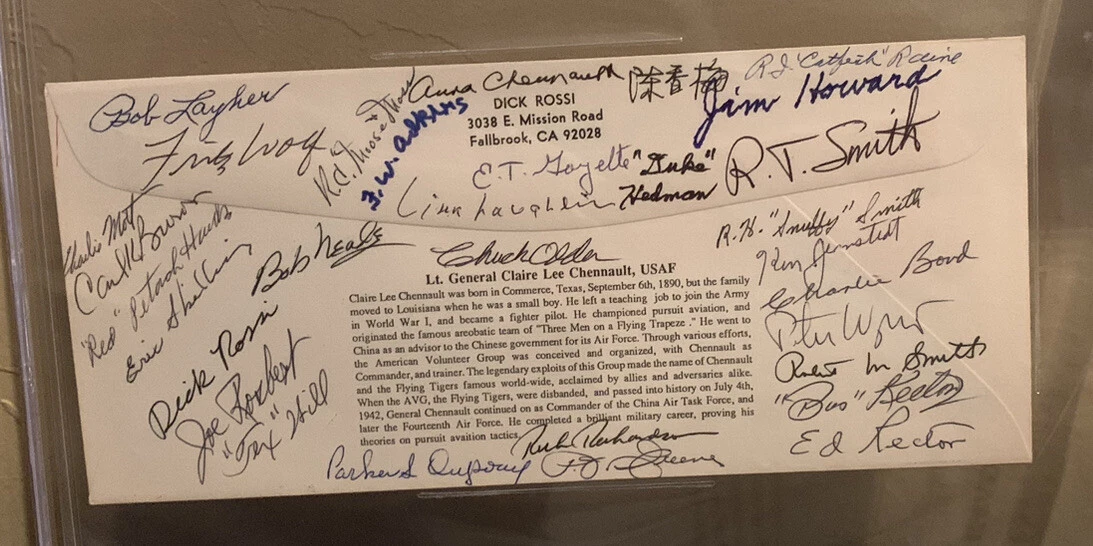 Bob Layher
Fritz Wolf
R.C. "Moose" Moss
F.W. Adkins
Anna Chennault 陳香梅
R J "Catfish" Raine
Jim Howard
DICK ROSSI
3038 E. Mission Road
Fallbrook, CA 92028
E.T. Goyette
"Duke"
Hedman
R.T. Smith
Lina Laughlin
Charlie Mott
Carl K Brown
"Red" Petach Hanks
Eric Shilling
Bob Neale
Chuck Older
R.H. "Snuffy" Smith
Ken Jernstedt
Charlie Bond
Peter Wright
Robert M Smith
"Bus" Keeton
Ed Rector
Dick Rossi
Joe Rosbert
"Tex" Hill
Lt. General Claire Lee Chennault, USAF
Claire Lee Chennault was born in Commerce, Texas, September 6th, 1890, but the family
moved to Louisiana when he was a small boy. He left a teaching job to join the Army
in World War I, and became a fighter pilot. He championed pursuit aviation, and
originated the famous areobatic team of "Three Men on a Flying Trapeze ." He went to
China as an advisor to the Chinese government for its Air Force. Through various efforts,
the American Volunteer Group was conceived and organized, with Chennault as
Commander, and trainer. The legendary exploits of this Group made the name of Chennault
and the Flying Tigers famous world-wide, acclaimed by allies and adversaries alike.
When the AVG, the Flying Tigers, were disbanded, and passed into history on July 4th,
1942, General Chennault continued on as Commander of the China Air Task Force, and
later the Fourteenth Air Force. He completed a brilliant military career, proving his
theories on pursuit avaition tactics.
Rich Richardson
Parker S Dupouy
P J Greene